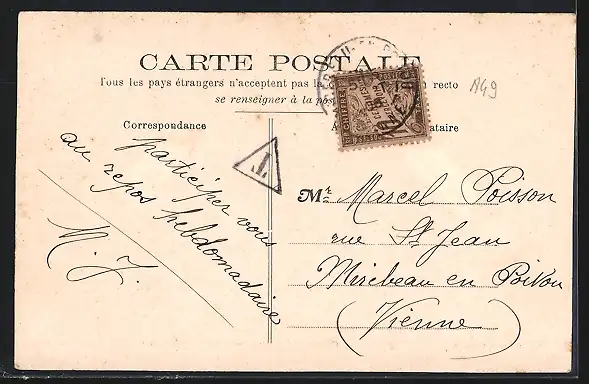 CARTE POSTALE
Tous les pays étrangers n'acceptent pas la recto
se renseigner à la pos
Correspondance
A taire
A49
T
participez vous
au repos hebdomadaire
M. J.
Mr. Marcel Poisson
rue St Jean
Mirebeau en Poitou
(Vienne)